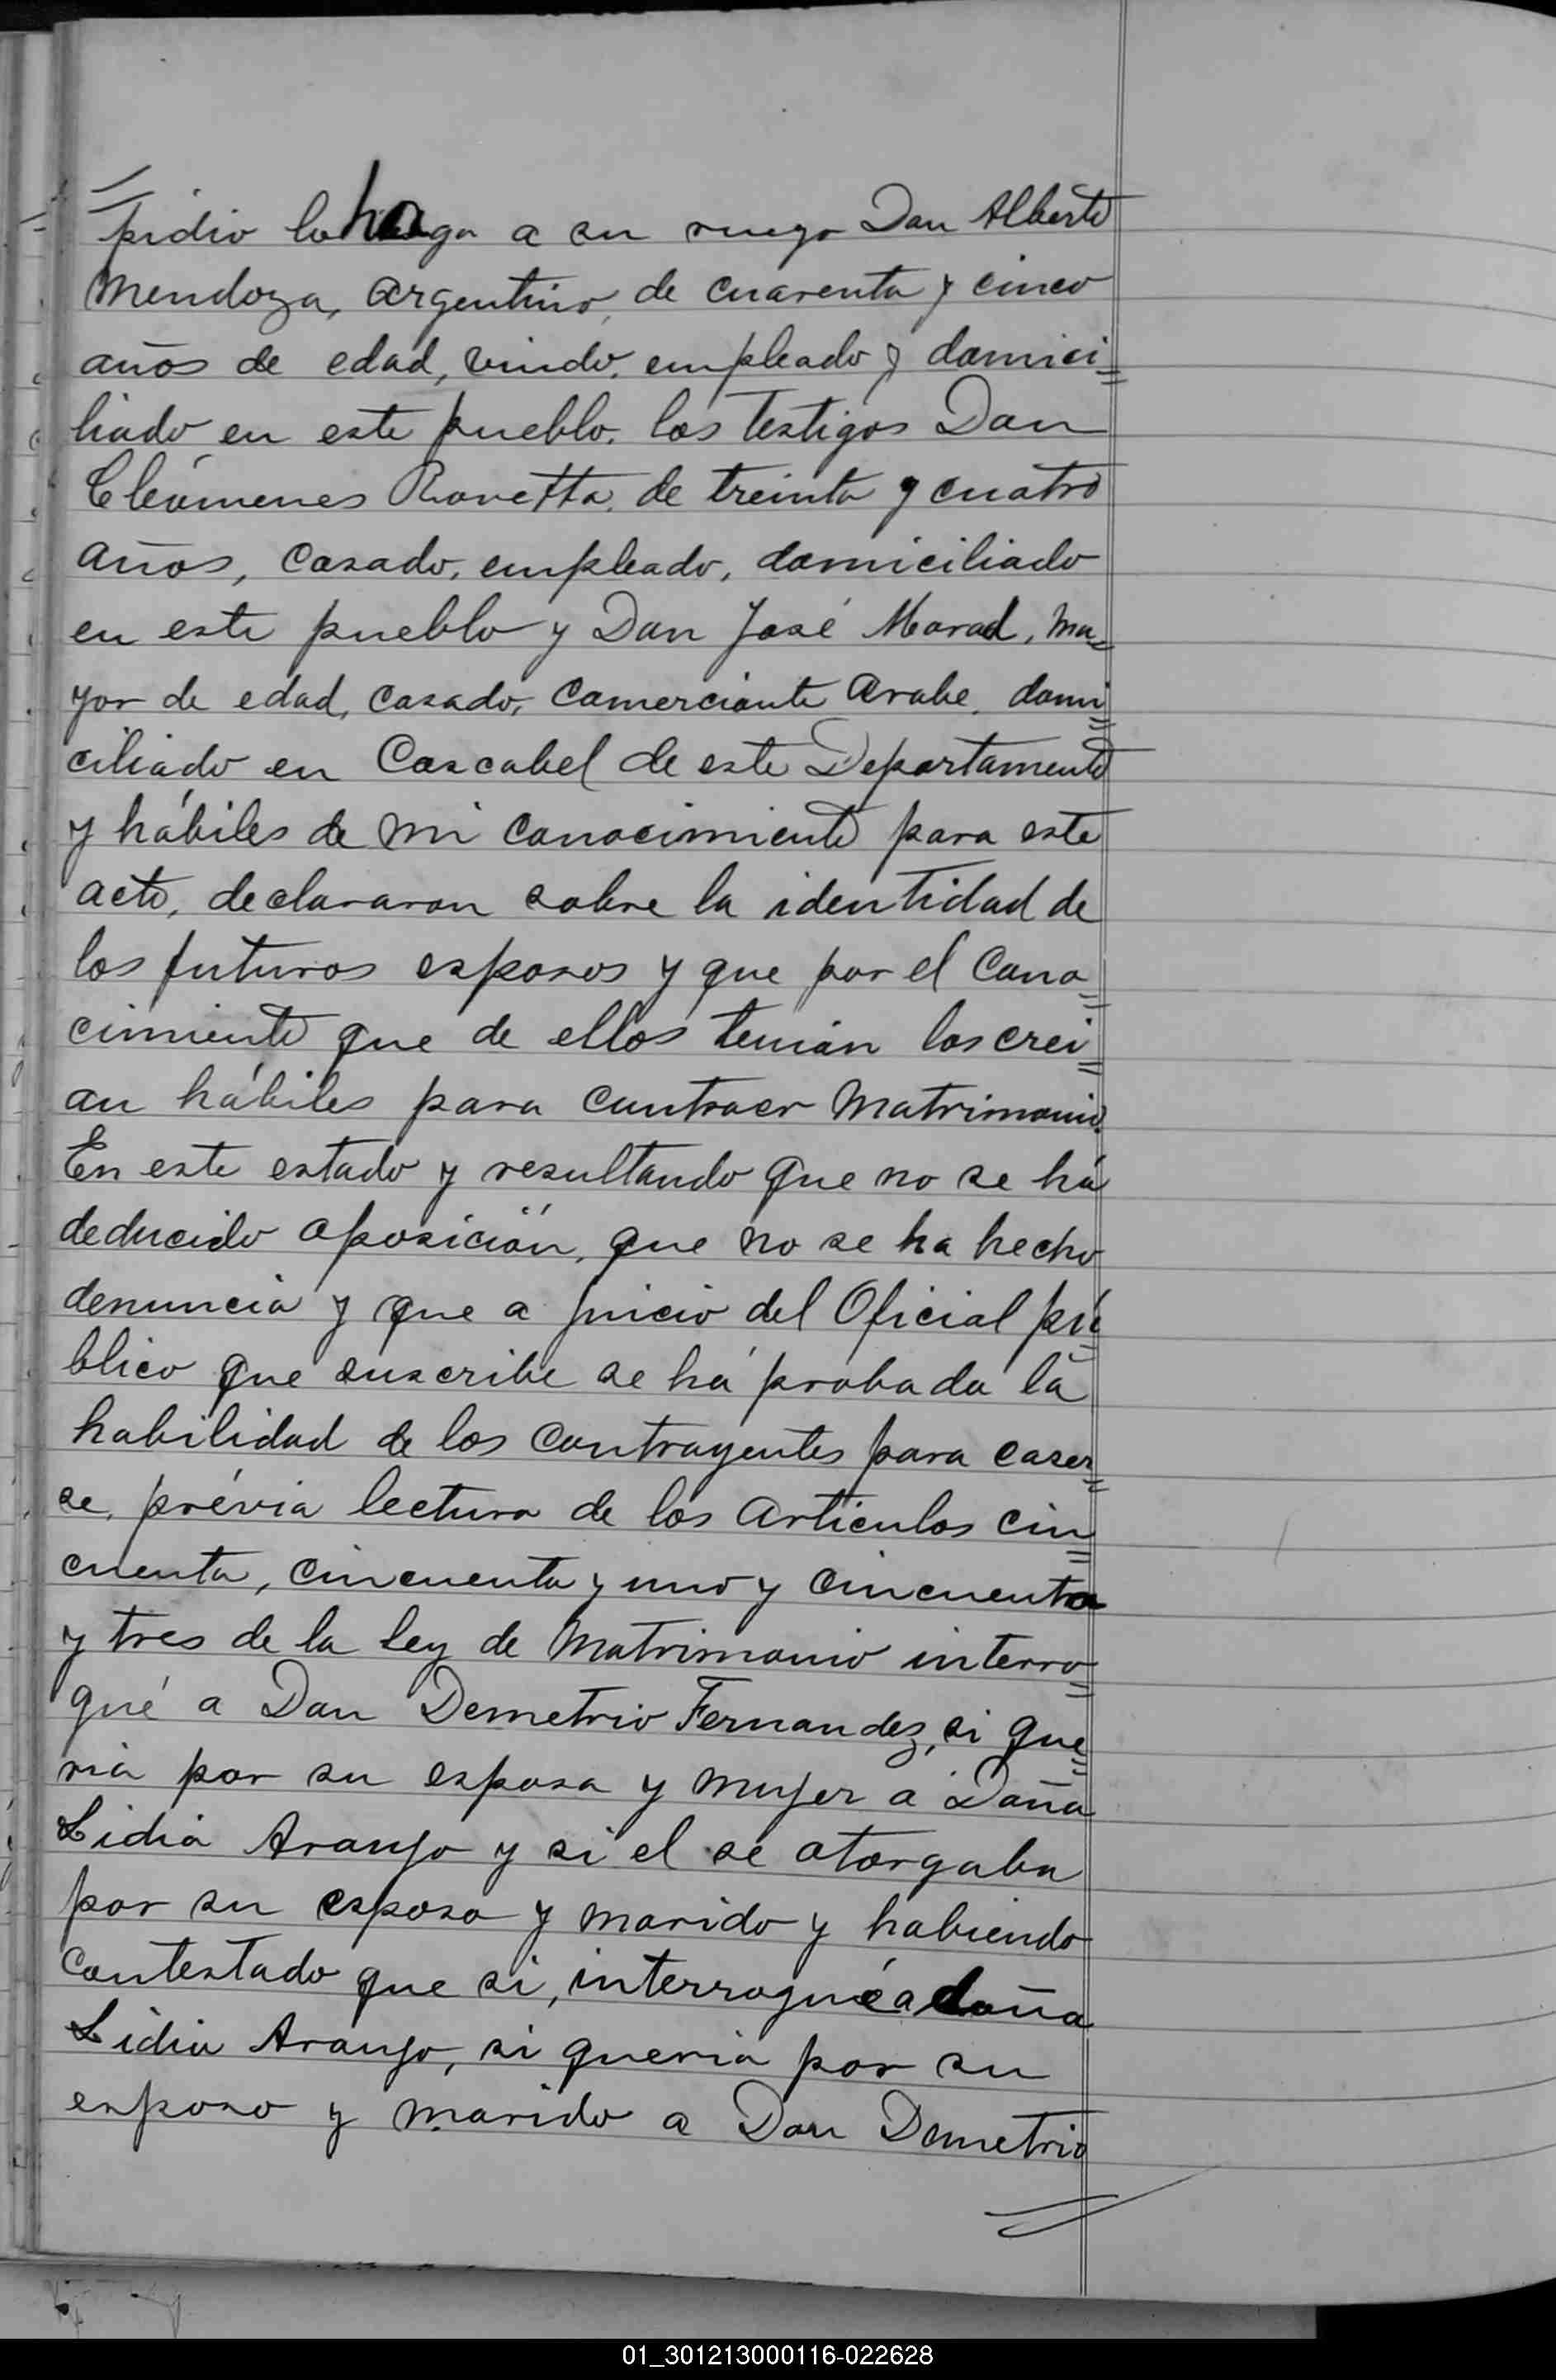 pidio lo haga a su ruego Don Alberto
Mendoza, Argentino, de cuarenta y cinco
años de edad, viudo, empleado y domici=
liado en este pueblo. los testigos Don
Cleómenes Rovetta, de treinta y cuatro
años, casado, empleado, domiciliado
en este pueblo y Don José Morad, ma=
yor de edad, casado, comerciante Arabe, domi=
ciliado en Cascabel de este Departamento
y hábiles de mi conocimiento para este
acto, declararon sobre la identidad de
los futuros esposos y que por el cono=
cimiento que de ellos tenian los crei=
an hábiles para contraer Matrimonio.
En este estado y resultando que no se há
deducido oposición, que no se ha hecho
denuncia y que a juicio del Oficial pú=
blico que suscribe se há probado la
habilidad de los contrayentes para casar=
se, prévia lectura de los Articulos cin=
cuenta, cincuenta y uno y cincuenta
y tres de la ley de Matrimonio interro=
gué a Don Demetrio Fernandez, si que=
ria por su esposa y mujer a Doña
Lidia Araujo y si el se otorgaba
por su esposo y marido y habiendo
contestado que si, interrogué a doña
Lidia Araujo, si queria por su
esposo y marido a Don Demetrio
01_301213000116-022628